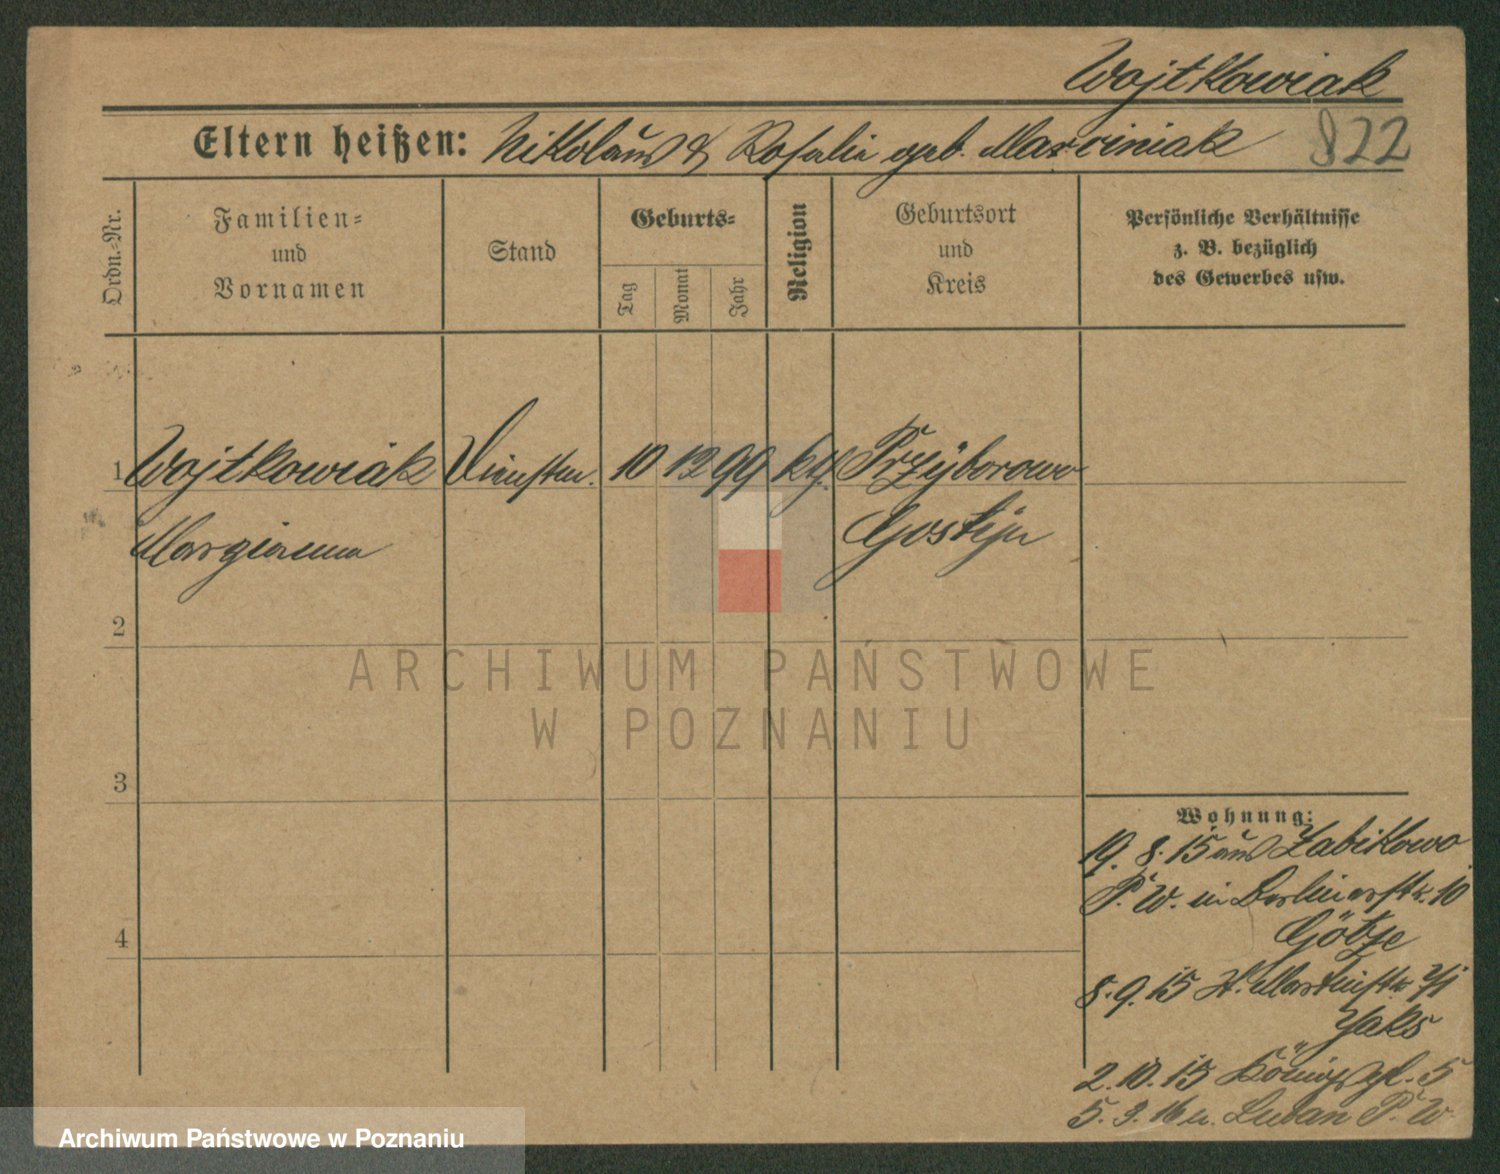 Wojtkowiak
Eltern heißen: Nikolaus & Rosalie geb. Marciniak 822
Ordn.=Nr.
Familien=
und
Vornamen
Stand
Geburts=
Tag
Monat
Jahr
Religion
Geburtsort
und
Kreis
Persönliche Verhältnisse
z. B. bezüglich
des Gewerbes usw.
1 Wojtkowiak Dienstm. 10 12 99 kth. Przyborowo
Margianna Gostyn
2
3
4
Wohnung:
19. 8. 15 aus Zabikowo
P. W. in Berlinerstr. 10
Götze
8. 9. 15 St. Martinstr.
Jaks
2. 10. 15 Königspl. 5
5. 3. 16 n. Luban P. W
ARCHIWUM PAŃSTWOWE
W POZNANIU
Archiwum Państwowe w Poznaniu